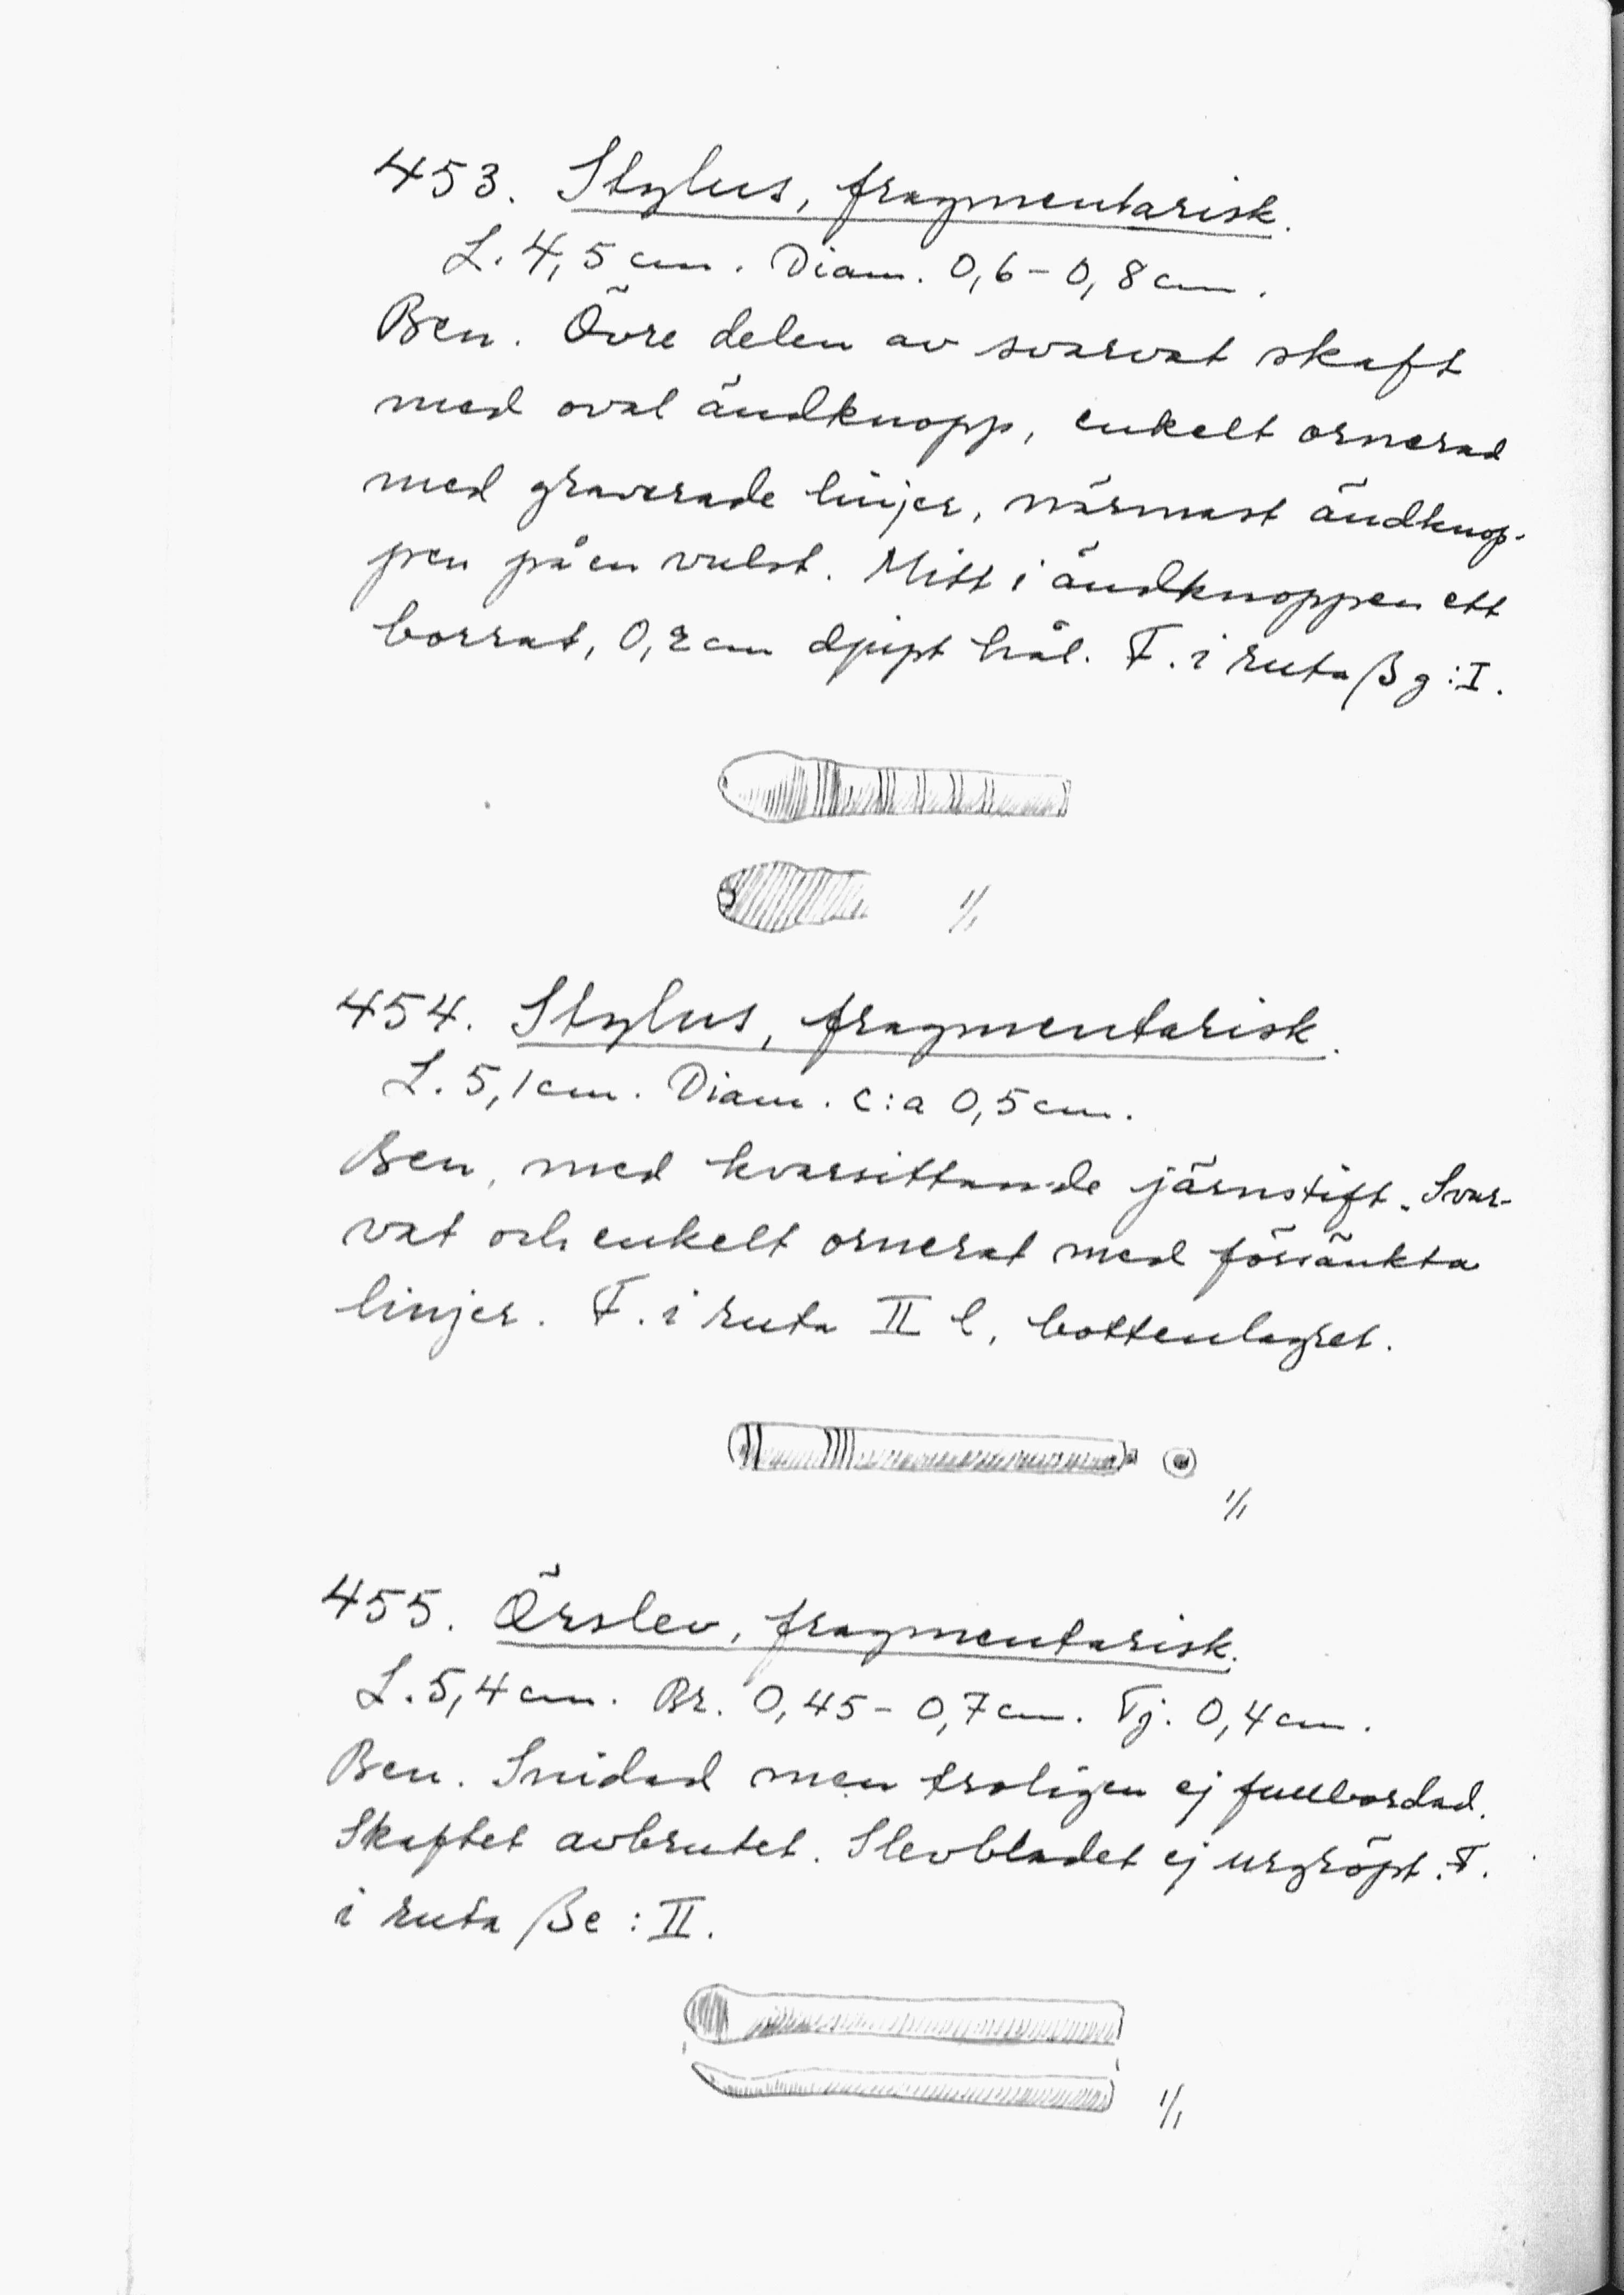 453. Stylus, fragmentarisk.
L. 4,5 cm. Diam. 0,6 – 0,8 cm.
Ben. Övre delen av svarvat skaft
med oval ändknopp, enkelt ornerad
med graverade linjer, närmast ändknop-
pen på en vulst. Mitt i ändknoppen ett
borrat, 0,2 cm djupt hål. F. i ruta βg:I.
1/1
454. Stylus, fragmentarisk.
L. 5,1 cm. Diam. c:a 0,5 cm.
Ben, med kvarsittande järnstift. Svar-
vat och enkelt ornerat med försänkta
linjer. F. i ruta II l, bottenlagret.
1/1
455. Örslev, fragmentarisk.
L. 5,4 cm. Br. 0,45 – 0,7 cm. Tj. 0,4 cm.
Ben. Snidad men troligen ej fullbordad.
Skaftet avbrutet. Slevbladet ej urgröpt. F.
i ruta βe:II.
1/1